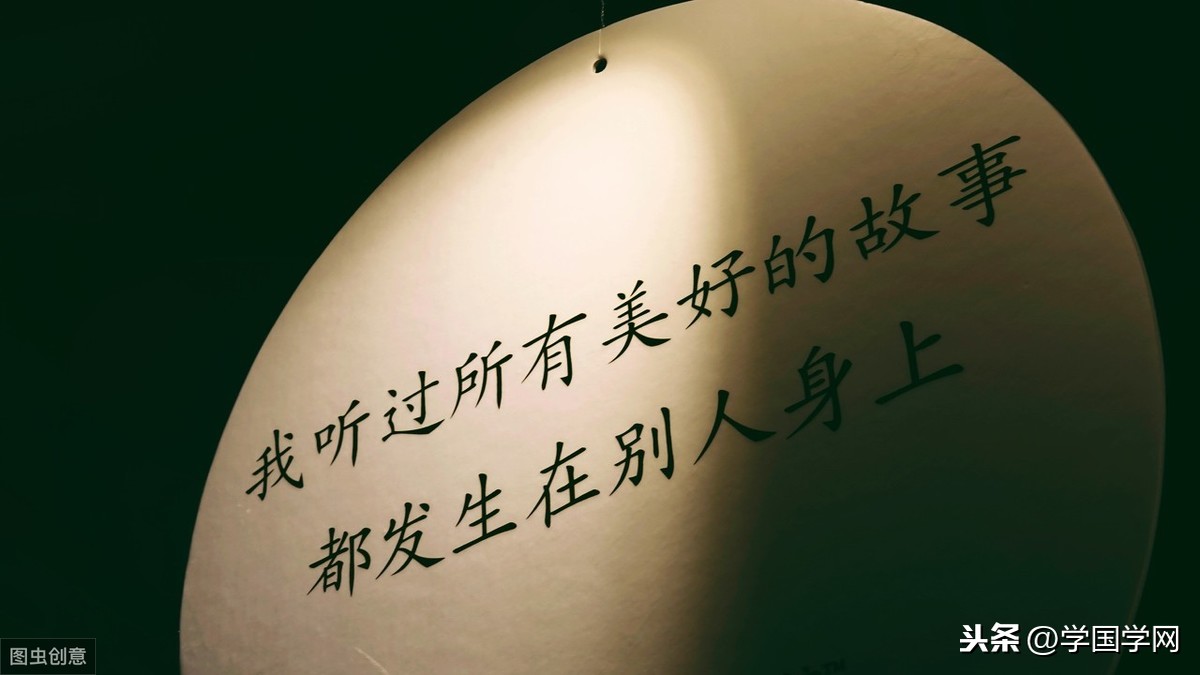 我听过所有美好的故事
都发生在别人身上
图虫创意
头条 @学国学网